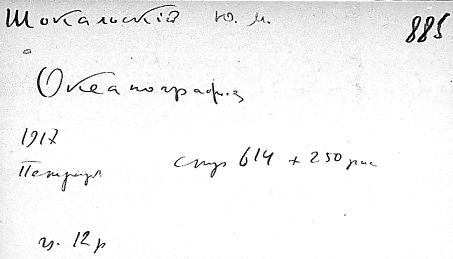 Шокальскій Ю. М. 885
Океанографія
1917
Петрград стр 614 + 250 рис
ц. 12 р